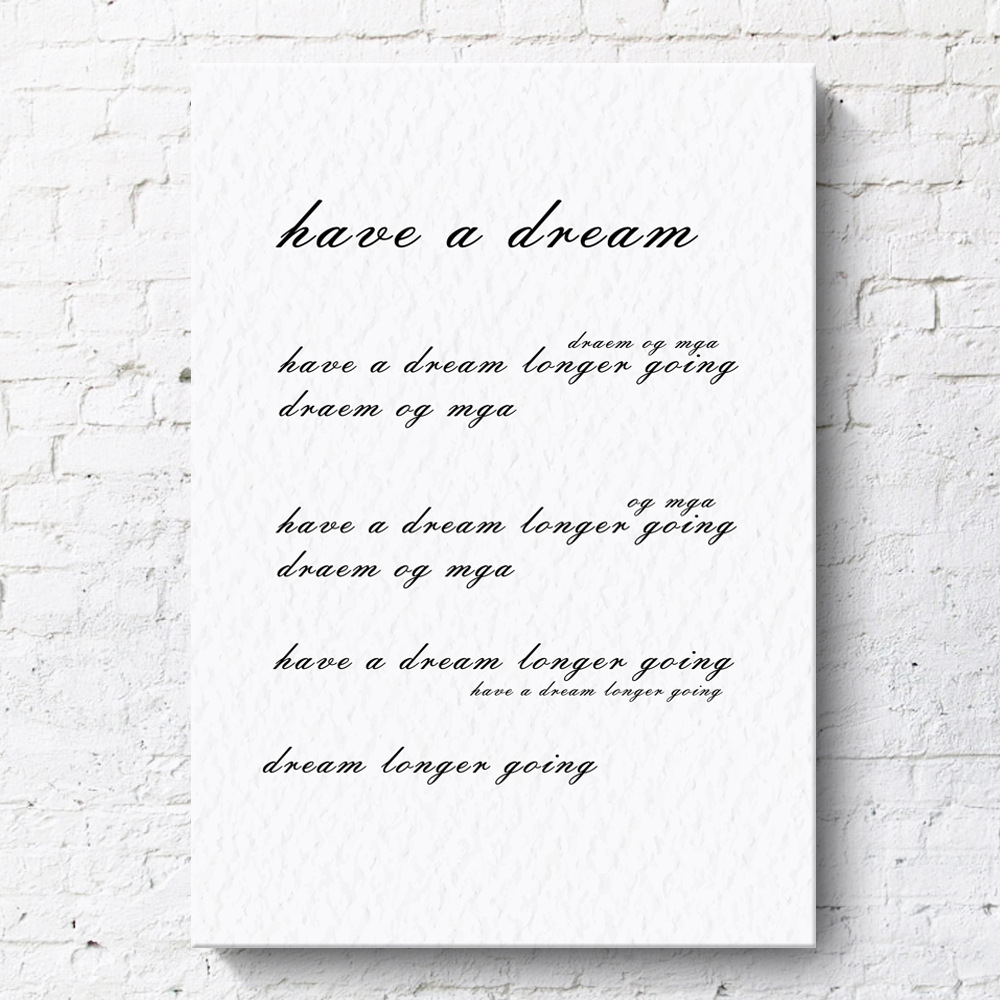 have a dream
draem og mga
have a dream longer going
draem og mga
og mga
have a dream longer going
draem og mga
have a dream longer going
have a dream longer going
dream longer going